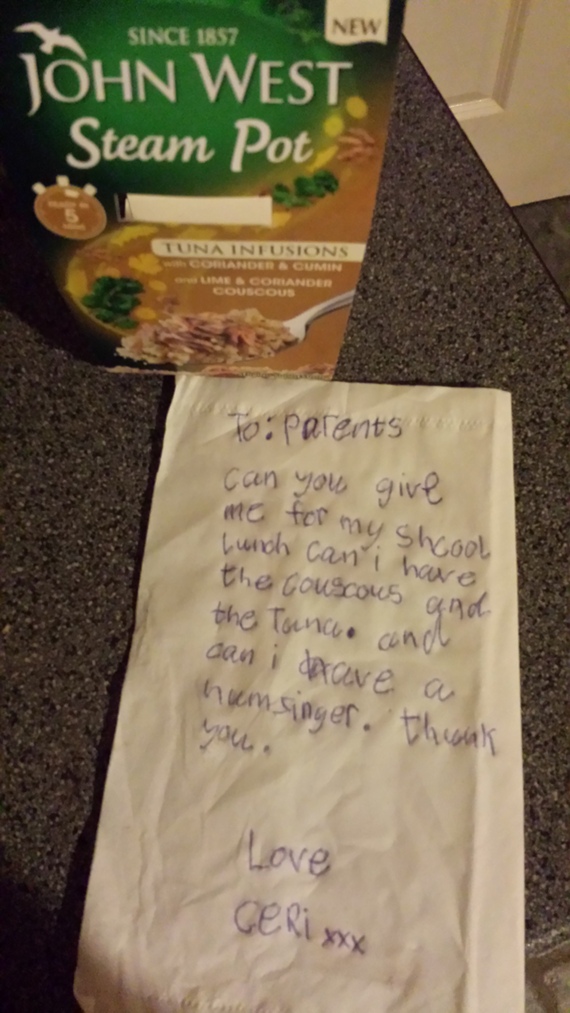 NEW
SINCE 1857
JOHN WEST
Steam Pot
5
TUNA INFUSIONS
with CORIANDER & CUMIN
and LIME & CORIANDER
COUSCOUS
To: parents
can you give
me for my shcool
lunch can i have
the couscous and
the Tuna. and
can i have a
humsinger. thank
you.
Love
GERi xxx